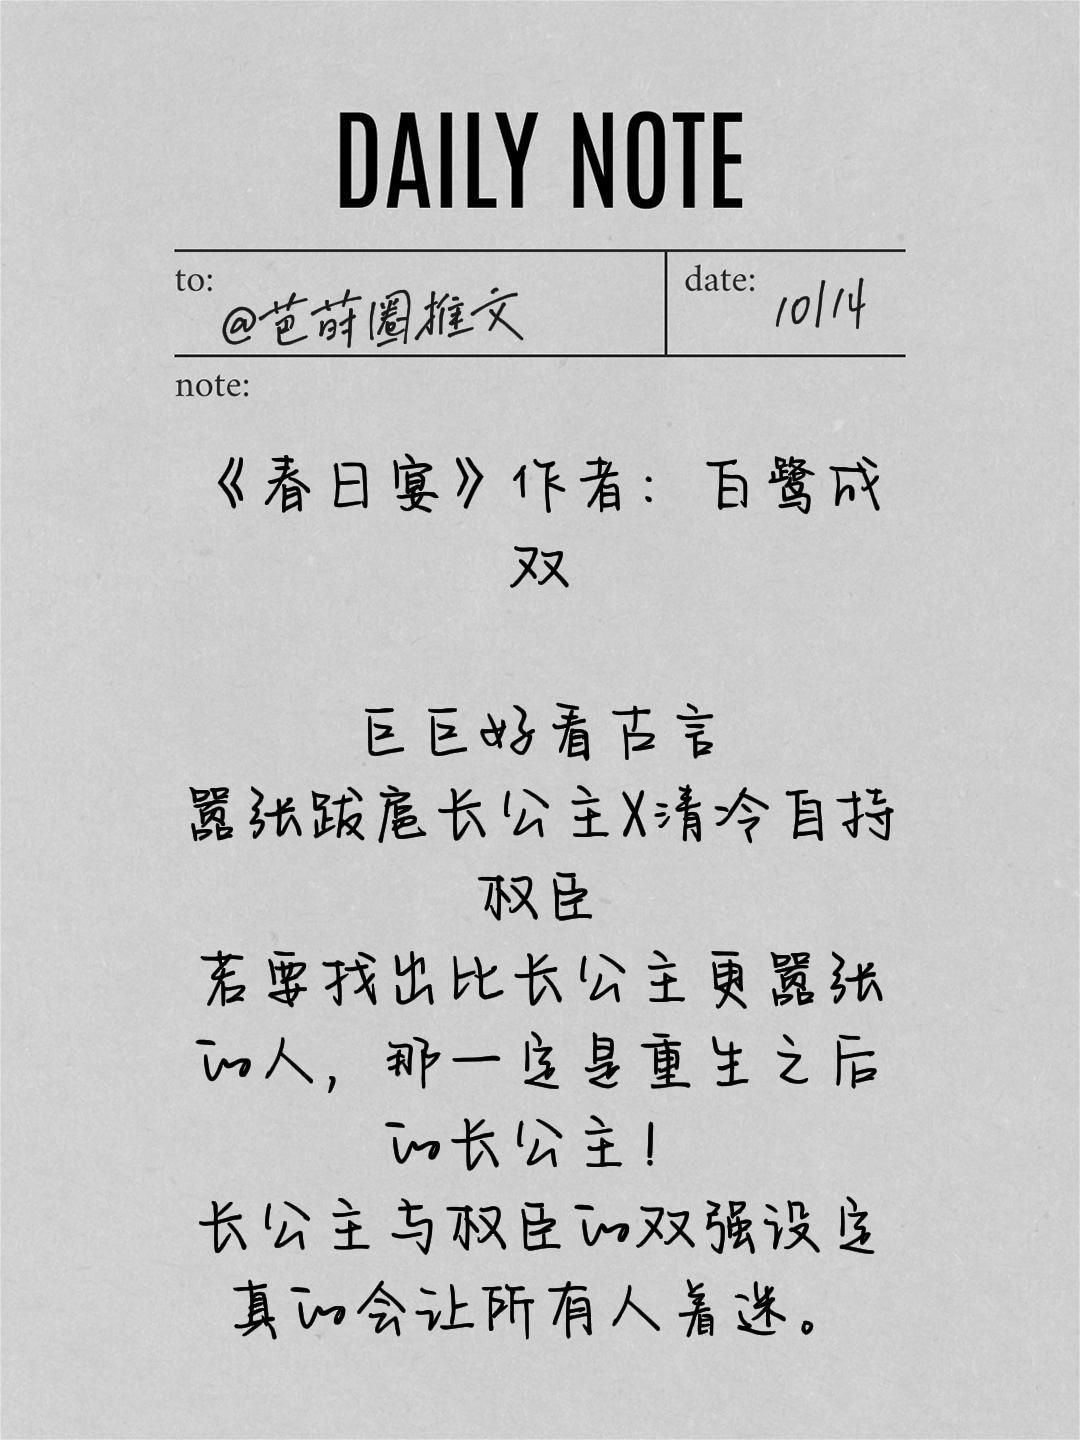 DAILY NOTE
to:
@芭莳圈推文
date:
10/14
note:
《春日宴》作者：白鹭成
双
巨巨好看古言
嚣张跋扈长公主X清冷自持
权臣
若要找出比长公主更嚣张
的人，那一定是重生之后
的长公主！
长公主与权臣的双强设定
真的会让所有人着迷。